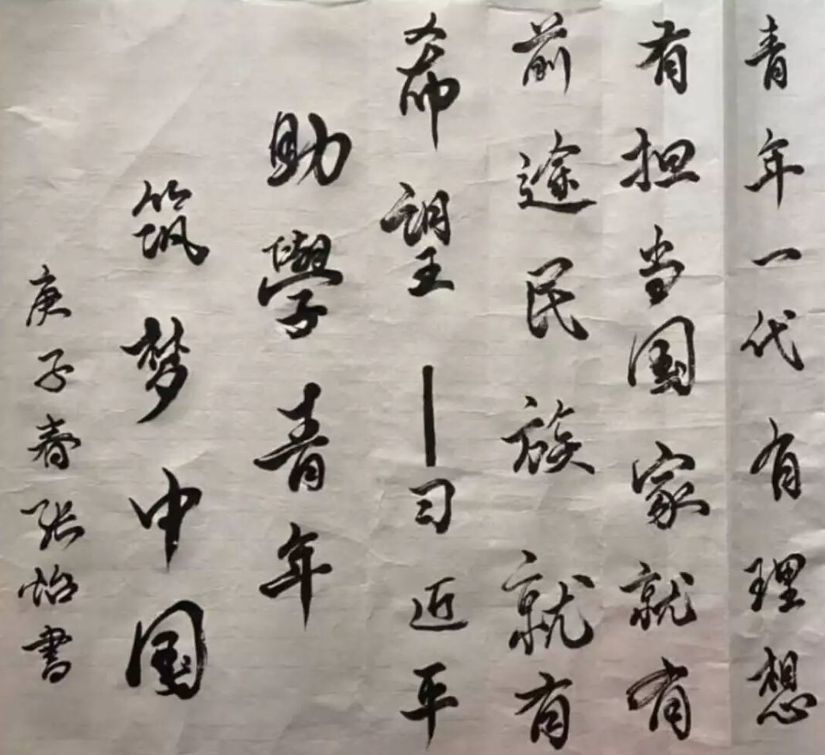 青年一代有理想
有担当国家就有
前途民族就有
希望—习近平
助學青年
筑梦中国
庚子春张怡書